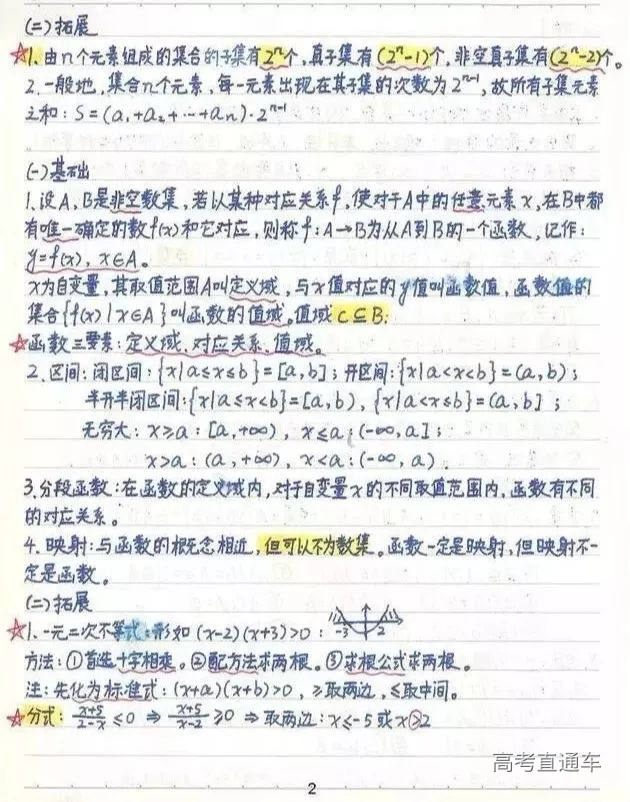 (二)拓展
☆1. 由n个元素组成的集合的子集有2ⁿ个,真子集有(2ⁿ-1)个,非空真子集有(2ⁿ-2)个。
2. 一般地,集合n个元素,每一元素出现在其子集的次数为2ⁿ⁻¹,故所有子集元素
之和:S=(a₁+a₂+…+aₙ)·2ⁿ⁻¹
(一)基础
1. 设A,B是非空数集,若以某种对应关系f,使对于A中的任意元素x,在B中都
有唯一确定的数f(x)和它对应,则称f:A→B为从A到B的一个函数,记作:
y=f(x),x∈A。
x为自变量,其取值范围A叫定义域,与x值对应的y值叫函数值,函数值的
集合{f(x)|x∈A}叫函数的值域。值域C⊆B;
☆函数三要素:定义域、对应关系、值域。
2. 区间:闭区间:{x|a≤x≤b}=[a,b];开区间:{x|a<x<b}=(a,b);
半开半闭区间:{x|a≤x<b}=[a,b),{x|a<x≤b}=(a,b];
无穷大:x≥a:[a,+∞),x≤a:(-∞,a];
x>a:(a,+∞),x<a:(-∞,a)
3. 分段函数:在函数的定义域内,对于自变量x的不同取值范围内,函数有不同
的对应关系。
4. 映射:与函数的概念相近,但可以不为数集。函数一定是映射,但映射不一
定是函数。
(二)拓展
☆1. 一元二次不等式:形如(x-2)(x+3)>0: -3 2
方法:①首选十字相乘。②配方法求两根。③求根公式求两根。
注:先化为标准式:(x+a)(x+b)>0,≥取两边,≤取中间。
☆分式:(x+5)/(2-x)≤0⇒(x+5)/(x-2)≥0⇒取两边:x≤-5或x>2
高考直通车
2